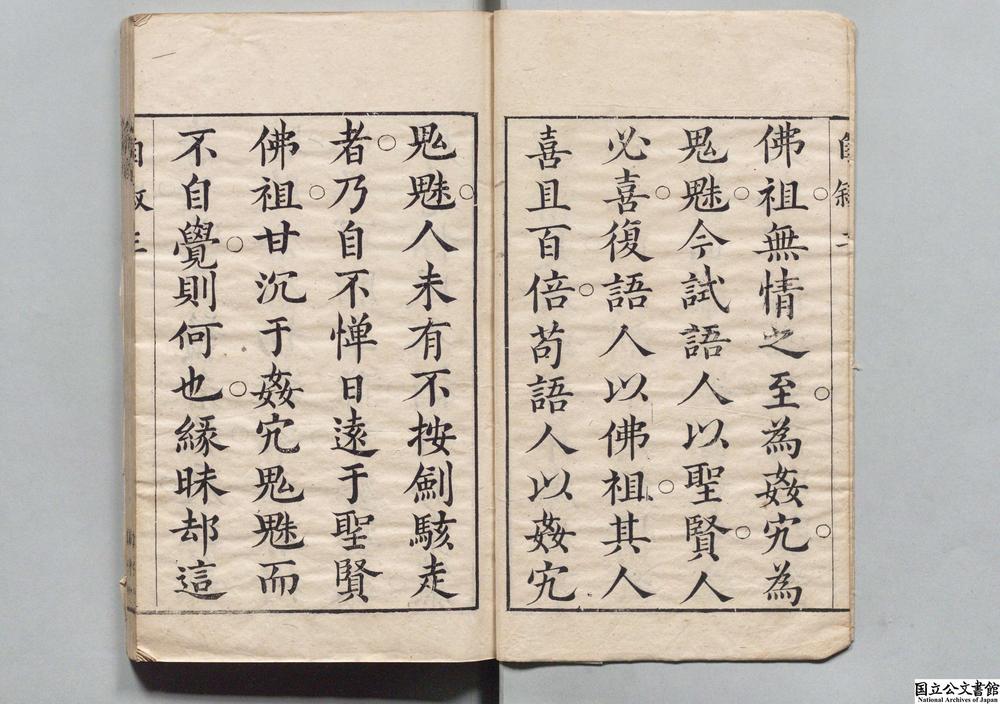 佛祖無情之至為姦宄為
鬼魅今試語人以聖賢人
必喜復語人以佛祖其人
喜且百倍苟語人以姦宄
鬼魅人未有不按劍駭走
者乃自不憚日遠于聖賢
佛祖甘沉于姦宄鬼魅而
不自覺則何也緣昧却這
国立公文書館
National Archives of Japan